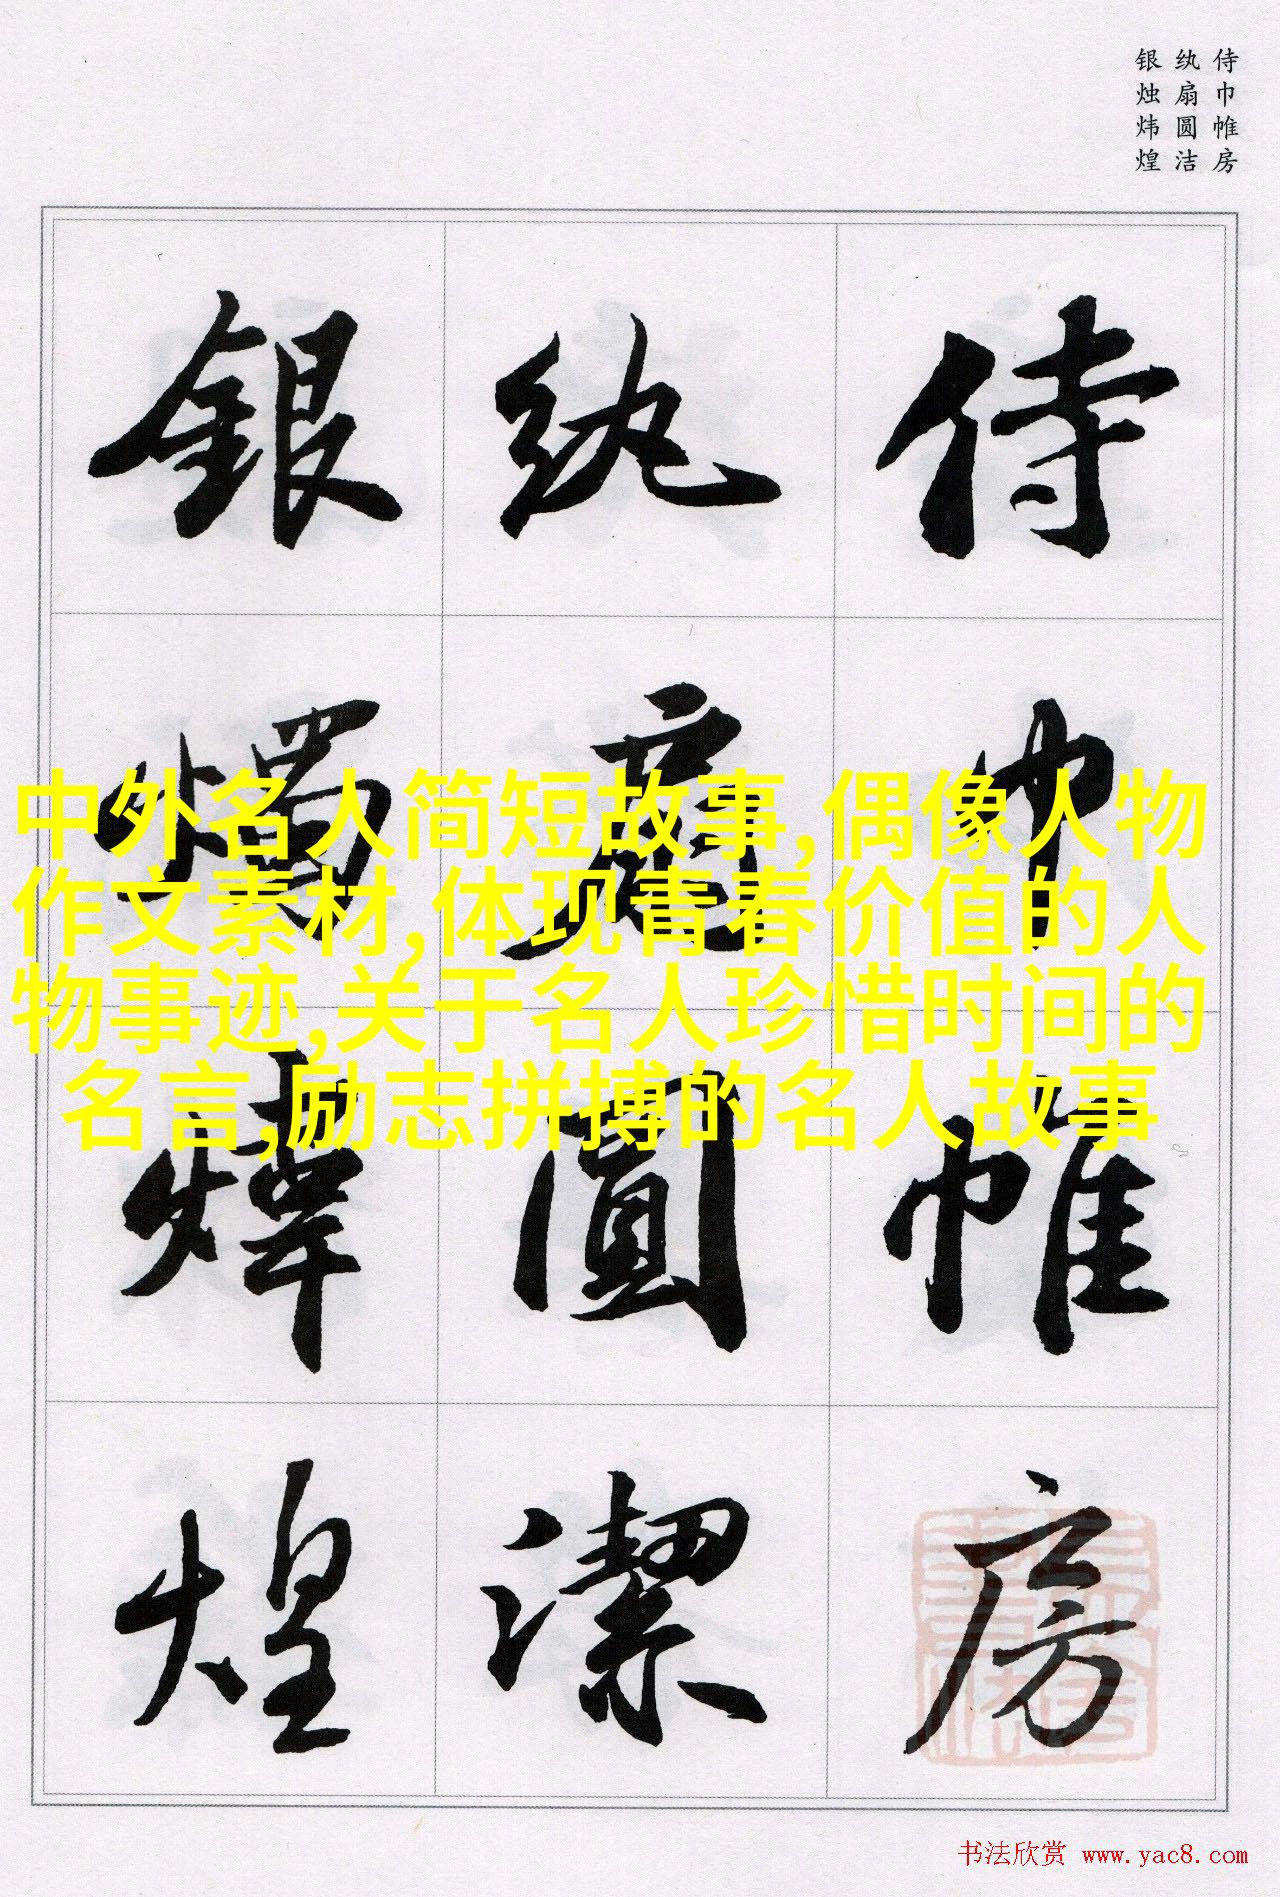 侍巾帷房
纨扇圆洁
银烛炜煌
侍巾帷房
紈扇圓潔
銀燭煒煌
中外名人简短故事,偶像人物
作文素材,体现青春价值的人
物事迹,关于名人珍惜时间的
名言,励志拼搏的名人故事
书法欣赏 www.yac8.com